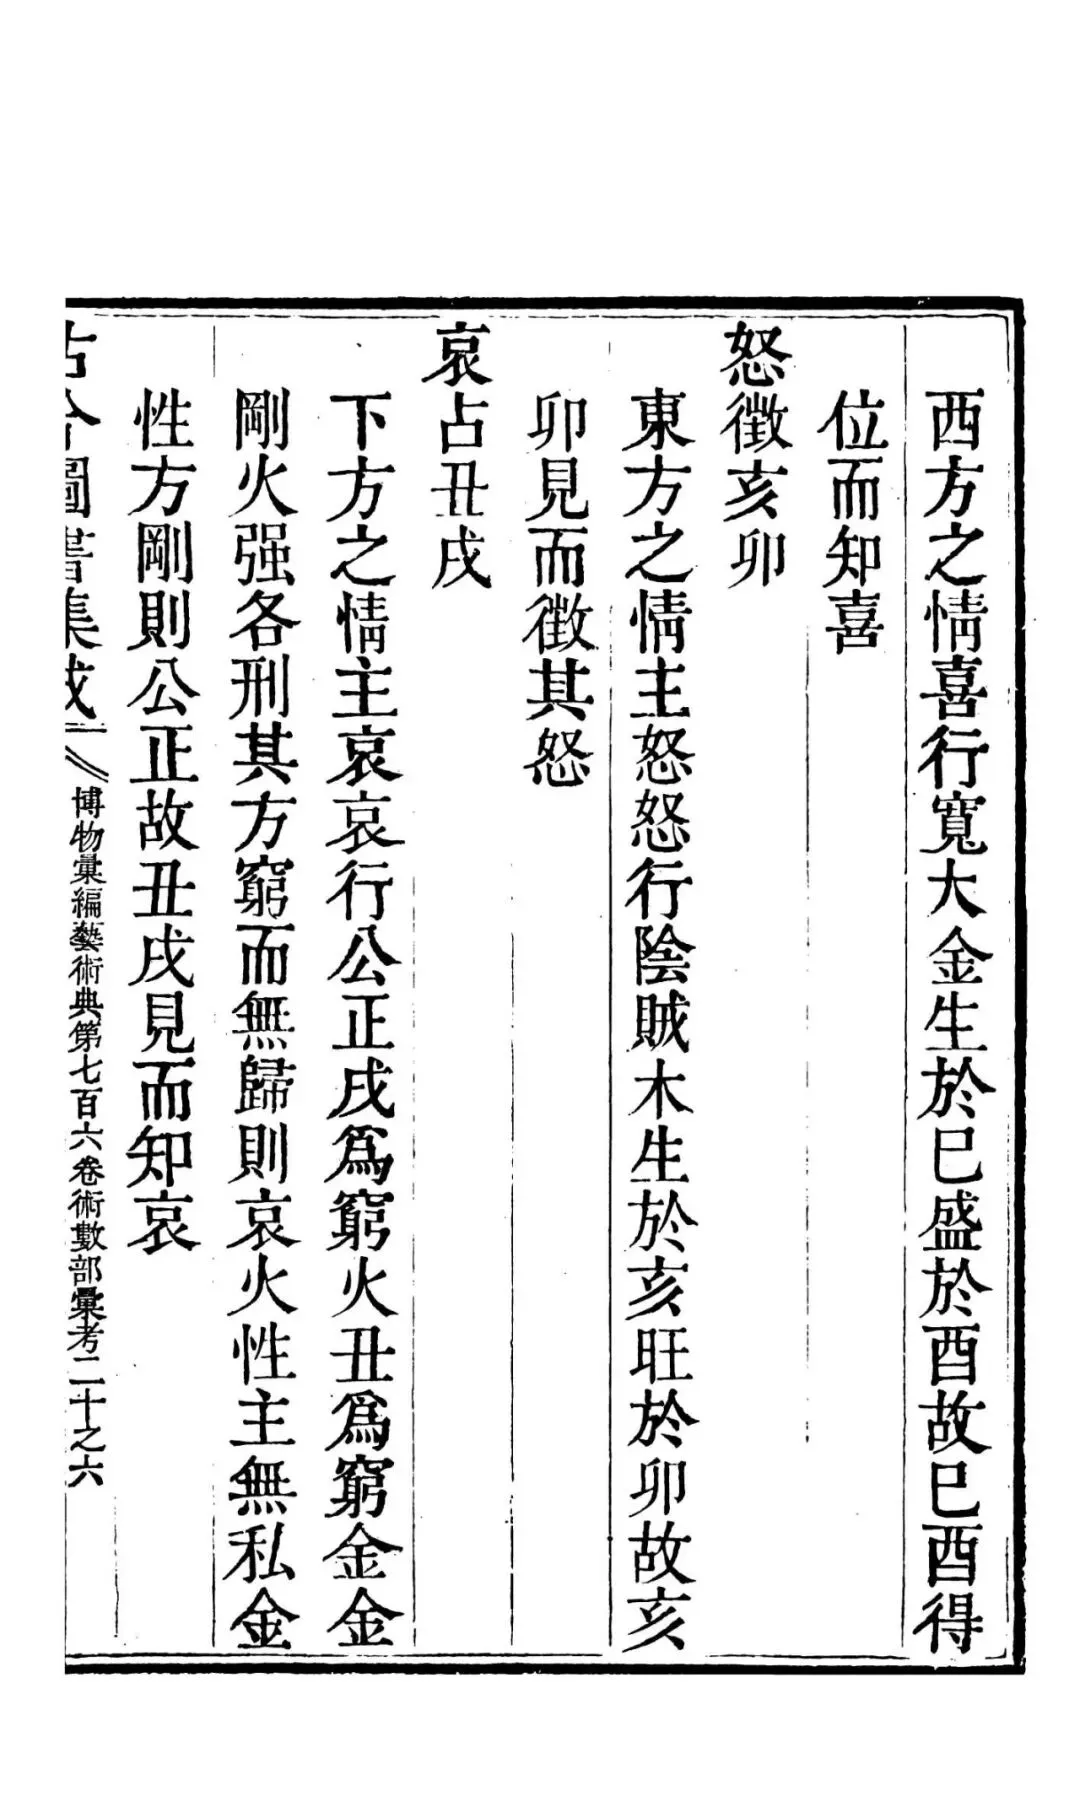 西方之情喜行寬大金生於巳盛於酉故巳酉得
位而知喜
怒徵亥卯
東方之情主怒怒行陰賊木生於亥旺於卯故亥
卯見而徵其怒
哀占丑戌
下方之情主哀哀行公正戌爲窮火丑爲窮金金
剛火强各刑其方窮而無歸則哀火性主無私金
性方剛則公正故丑戌見而知哀
古今圖書集成
博物彙編藝術典第七百六卷術數部彙考二十之六